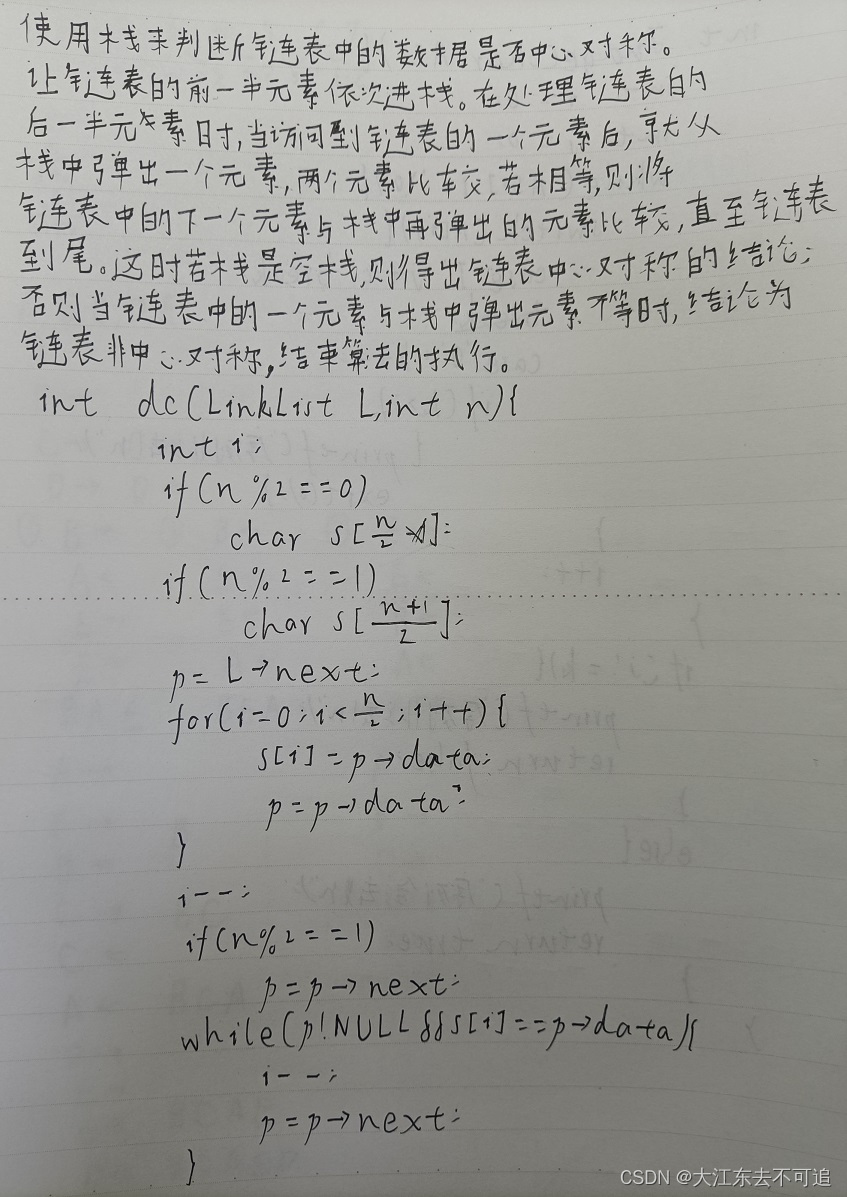 使用栈来判断链表中的数据是否中心对称。
让链表的前一半元素依次进栈。在处理链表的
后一半元素时,当访问到链表的一个元素后,就从
栈中弹出一个元素,两个元素比较,若相等,则将
链表中的下一个元素与栈中再弹出的元素比较,直至链表
到尾。这时若栈是空栈,则得出链表中心对称的结论;
否则当链表中的一个元素与栈中弹出元素不等时,结论为
链表非中心对称,结束算法的执行。
int dc(LinkList L,int n){
int i;
if(n%2==0)
char s[n/2];
if(n%2==1)
char s[(n+1)/2];
p=L→next;
for(i=0;i<n/2;i++){
s[i]=p→data;
p=p→data;
}
i--;
if(n%2==1)
p=p→next;
while(p!NULL&&s[i]==p→data){
i--;
p=p→next;
}
CSDN @大江东去不可追